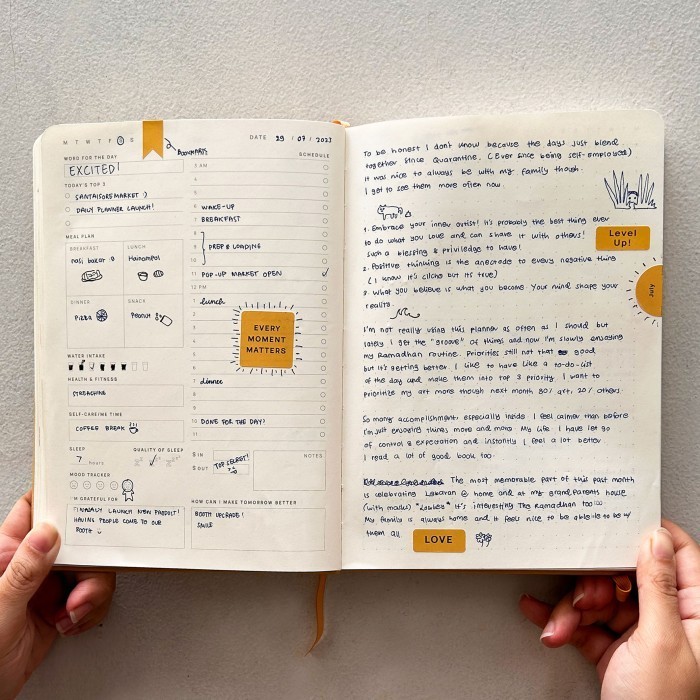 M T W T F S S
DATE 29 / 07 / 2023
BOOKMARK
WORD FOR THE DAY
EXCITED!
TODAY'S TOP 3
SANTAISOREMARKET :)
DAILY PLANNER LAUNCH!
MEAL PLAN
BREAKFAST
LUNCH
nasi bakar
Hainampoi
DINNER
SNACK
PIZZA
Peanut
WATER INTAKE
HEALTH & FITNESS
STREACHING
SELF-CARE/ME TIME
COFFEE BREAK
SLEEP
QUALITY OF SLEEP
7 hours
MOOD TRACKER
I'M GRATEFUL FOR
FINALLY LAUNCH NEW PRODUCT!
HAVING PEOPLE COME TO OUR
BOOTH
SCHEDULE
5 AM
6 WAKE-UP
7 BREAKFAST
8
9 PREP & LOADING
10
11 POP-UP MARKET OPEN
12 PM
1 lunch
EVERY
MOMENT
MATTERS
7 dinner
8
9
10 DONE FOR THE DAY?
11
$ IN
$ OUT
NOTES
HOW CAN I MAKE TOMORROW BETTER
BOOTH UPGRADE!
SMILE
To be honest I don't know because the days just blend
together since Quarantine. (Ever since being self-employed)
It was nice to always be with my family though.
I get to see them more often now.
1. Embrace your inner artist! It's probably the best thing ever
to do what you love and can share it with others!
Such a blessing & priviledge to have!
2. Positive thinking is the anecrote to every negative thing
(I know it's cliche but its true)
3. What you believe is what you become. Your mind shape your
reality.
Level
Up!
July
I'm not really using this planner as often as I should but
lately I get the "groove" of things and now I'm slowly enjoying
my Ramadhan routine. Priorities still not that good,
but it's getting better. I like to have like a to-do-list
of the day and make them into top 3 priority. I want to
prioritize my art more though next month 80% art, 20% others.
So many accomplishment, especially inside. I feel calmer than before
I'm just enjoying things more and more. My life I have let go
of control & expectation and instantly I feel a lot better
I read a lot of good book too.
The most memorable part of this past month
is celebrating Lebaran @ home and at my grandparents house
(with masks) It's interesting the Ramadhan too!
My family is always home and it feel nice to be able to be w/
them all
LOVE